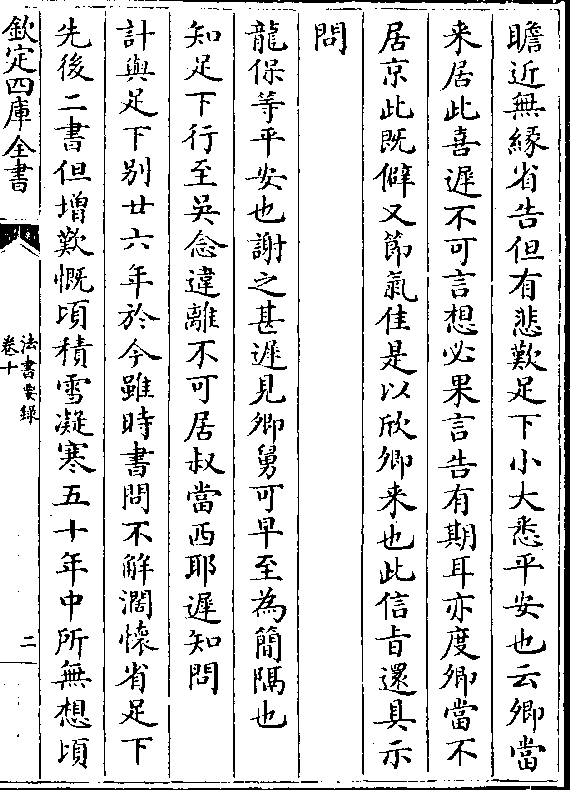 瞻近無緣省告但有悲歎足下小大悉平安也云卿當
来居此喜遲不可言想必果言告有期耳亦度卿當不
居京此既僻又節氣佳是以欣卿来也此信旨還具示
問
龍保等平安也謝之甚遲見卿舅可早至為簡隔也
知足下行至吳念違離不可居叔當西耶遲知問
計與足下别廿六年於今雖時書問不解濶懷省足下
先後二書但增歎慨頃積雪凝寒五十年中所無想頃
欽定四庫全書
法書要録
卷十
二